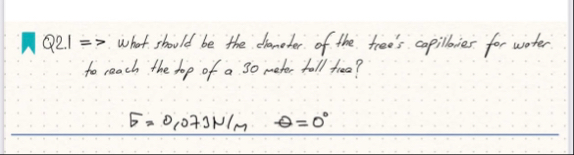 Q2.1 => what should be the diameter of the tree's capillaries for water
to reach the top of a 30 meter tall tree?
σ = 0,073N/m θ=0°